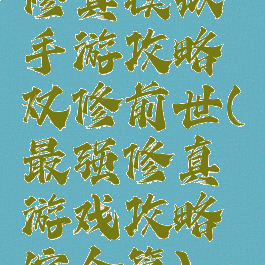 修真模拟
手游攻略
双修前世(
最强修真
游戏攻略
综合篇)